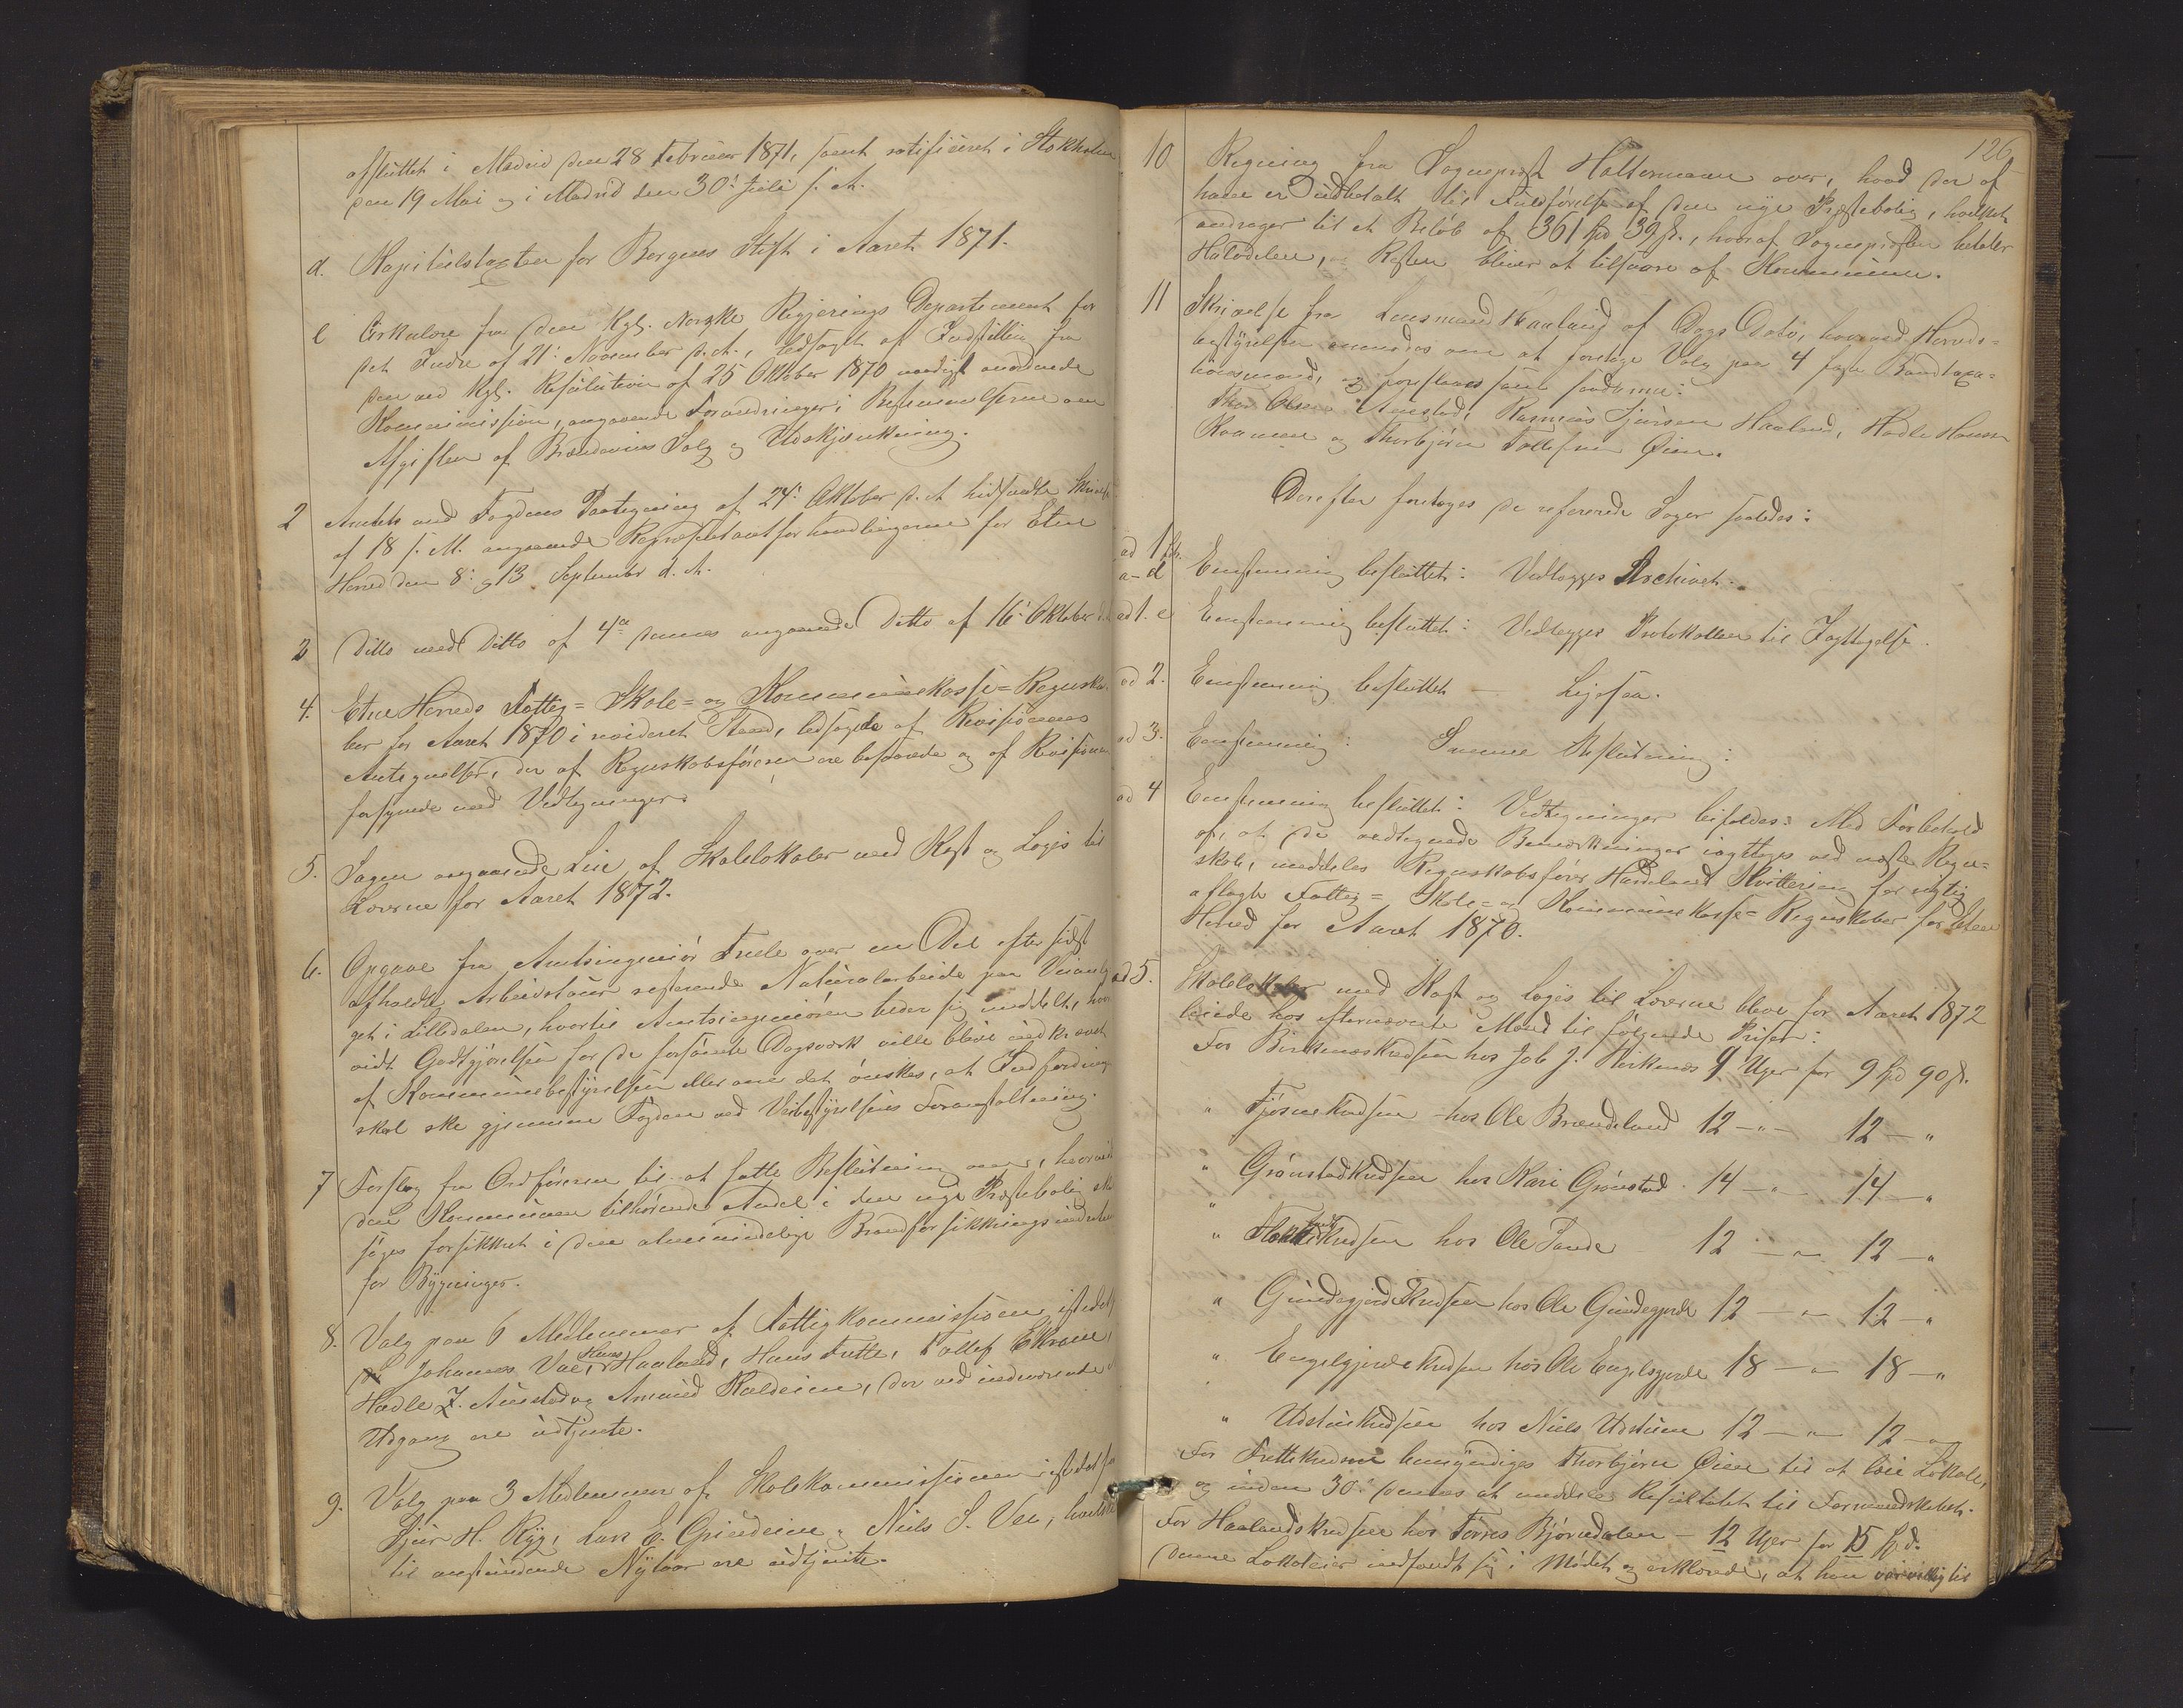 afsluttet i Madrid den 28 Februar 1871, samt ratificeret i Stokholm
den 19 Mai og i Madrid den 30' Juli s. A.
d. Kapitelstaxten for Bergens Stift i Aaret 1871.
e Cirkulære fra den Kgl. Norske Regjerings Departement for
det Indre af 21' November d. A., ledsaget af Indstilling fra
den ved Kgl. Resolution af 25 Oktober 1870 naadigst anordnede
Kommission, angaaende Forandringer i Bestemmelserne om
Afgiften af Brændevins Salg og Udskjænkning.
2 Amtets med Fogdens Paategning af 24' Oktober d. A. hidsendte Skrivelse
af 18 s. M. angaaende Repræsentantforhandlingerne for Etne
Herred den 8' og 13 September d. A.
3 Ditto med Ditto af 4de dennes angaaende Ditto af 16' Oktober d.
4. Etne Herreds Fattig= Skole= og Kommunekasse= Regnska-
ber for Aaret 1870 i revideret Stand, ledsagede af Revisionens
Antegnelser, der af Regnskabsføreren ere besvarede og af Revisionen
forsynede med Vedtegninger.
5. Sagen angaaende Leie af Skolelokaler med Kost og Logis til
Lærerne for Aaret 1872.
6. Opgave fra Amtsingeniør Trele over en Del efter sidst
afholdte Arbeidstour resterende Naturalarbeide paa Veianlæ-
get i Litledalen, hvortil Amtsingeniøren beder sig meddelt, hvor
vidt Godtgjørelsen for de forsømte Dagsværk ville blive indkrævet
af Kommunebestyrelsen eller om det ønskes, at Indfordring
skal ske gjennem Fogden ved Veibestyrelsens Foranstaltning.
7 Forslag fra Ordføreren til at fatte Beslutning om, hvorvidt
den Kommunen tilhørende Andel i den nye Præstebolig skal
søges forsikkret i den almindelige Brandforsikkringsindretning
for Bygninger.
8. Valg paa 6 Medlemmer af Fattigkommissionen istedetfor
Johannes Vae, Hans Haaland, Hans Frette, Tollef Ekrene,
Hadle J. Austad og Amund Kaldeim, der ved indeværende Aars
Udgang ere udtjente.
9. Valg paa 3 Medlemmer af Skolekommissionen istedetfor
Sjur H. Ryg, Lars E. Grindeim & Niels S. Vee, hvilke
til anstundende Nytaar ere udtjente.
126
10 Regning fra Sogneprest Haltermann over, hvad der af
ham er udbetalt til Fuldførelse af den nye Præstebolig, hvilket
andrager til et Beløb af 361 Spd 39 s., hvoraf Sognepresten betaler
Halvdelen, Resten bliver at tilsvare af Kommunen.
11 Skrivelse fra Lensmand Haaland af Dags Dato, hvorved Herreds=
bestyrelsen anmodes om at foretage Valg paa 4 faste Brandtaxa=
tionsmænd, og foreslaaes som saadanne:
Thor Olsen Austad, Rasmus Sjursen Haaland, Hadle Hansen
Kaarven og Thorbjørn Tollefsen Øien.
Derefter foretoges de refererede Sager saaledes:
ad 1 Litr. a-d Eenstemmig besluttet: Vedlægges Archivet.
ad 1. e Eenstemmig besluttet: Vedlægges Protokollen til Iagttagelse.
ad 2. Eenstemmig besluttet — Ligesaa.
ad 3. Eenstemmig: Samme Beslutning:
ad 4 Eenstemmig besluttet: Vedtegninger bifaldes: Med Forbehold
af, at de vedtegnede Bemærkninger iagttages ved næste Regn=
skab, meddeles Regnskabsfører Haaland Kvittering for rigtig
aflagte Fattig= Skole= og Kommunekasse= Regnskaber for Etne
Herred for Aaret 1870.
ad 5. Skolelokaler med Kost og Logis til Lærerne bleve for Aaret 1872
leiede hos efternævnte Mænd til følgende Priser:
For Birkenæskredsen hos Job J. Birkenæs 9 Uger for 9 Spd 90 s.
" Fjøsnekredsen hos Ole Brændeland 12 — " — 12 — "
" Grønstadkredsen hos Kari Grønstad 14 — " — 14 — "
" kredsen hos Ole Sande 12 — " — 12 — "
" Gundegjerdekredsen hos Ole Gundegjerde 12 — " — 12 — "
" Engelgjerdekredsen hos Ole Engelsgjerde 18 — " — 18 — "
" Udstuekredsen hos Niels Udstuen 12 — " — 12 — "
For Frettekredsen bemyndiges Thorbjørn Øien til at leie Lokale,
og inden 30' dennes at meddele Resultatet til Formandskabet.
For Haalandskredsen hos Tørres Bjørndalen — 12 Uger for 15 Spd.
Denne Lokaleier indfandt sig i Mødet og erklærede, at han var villig til